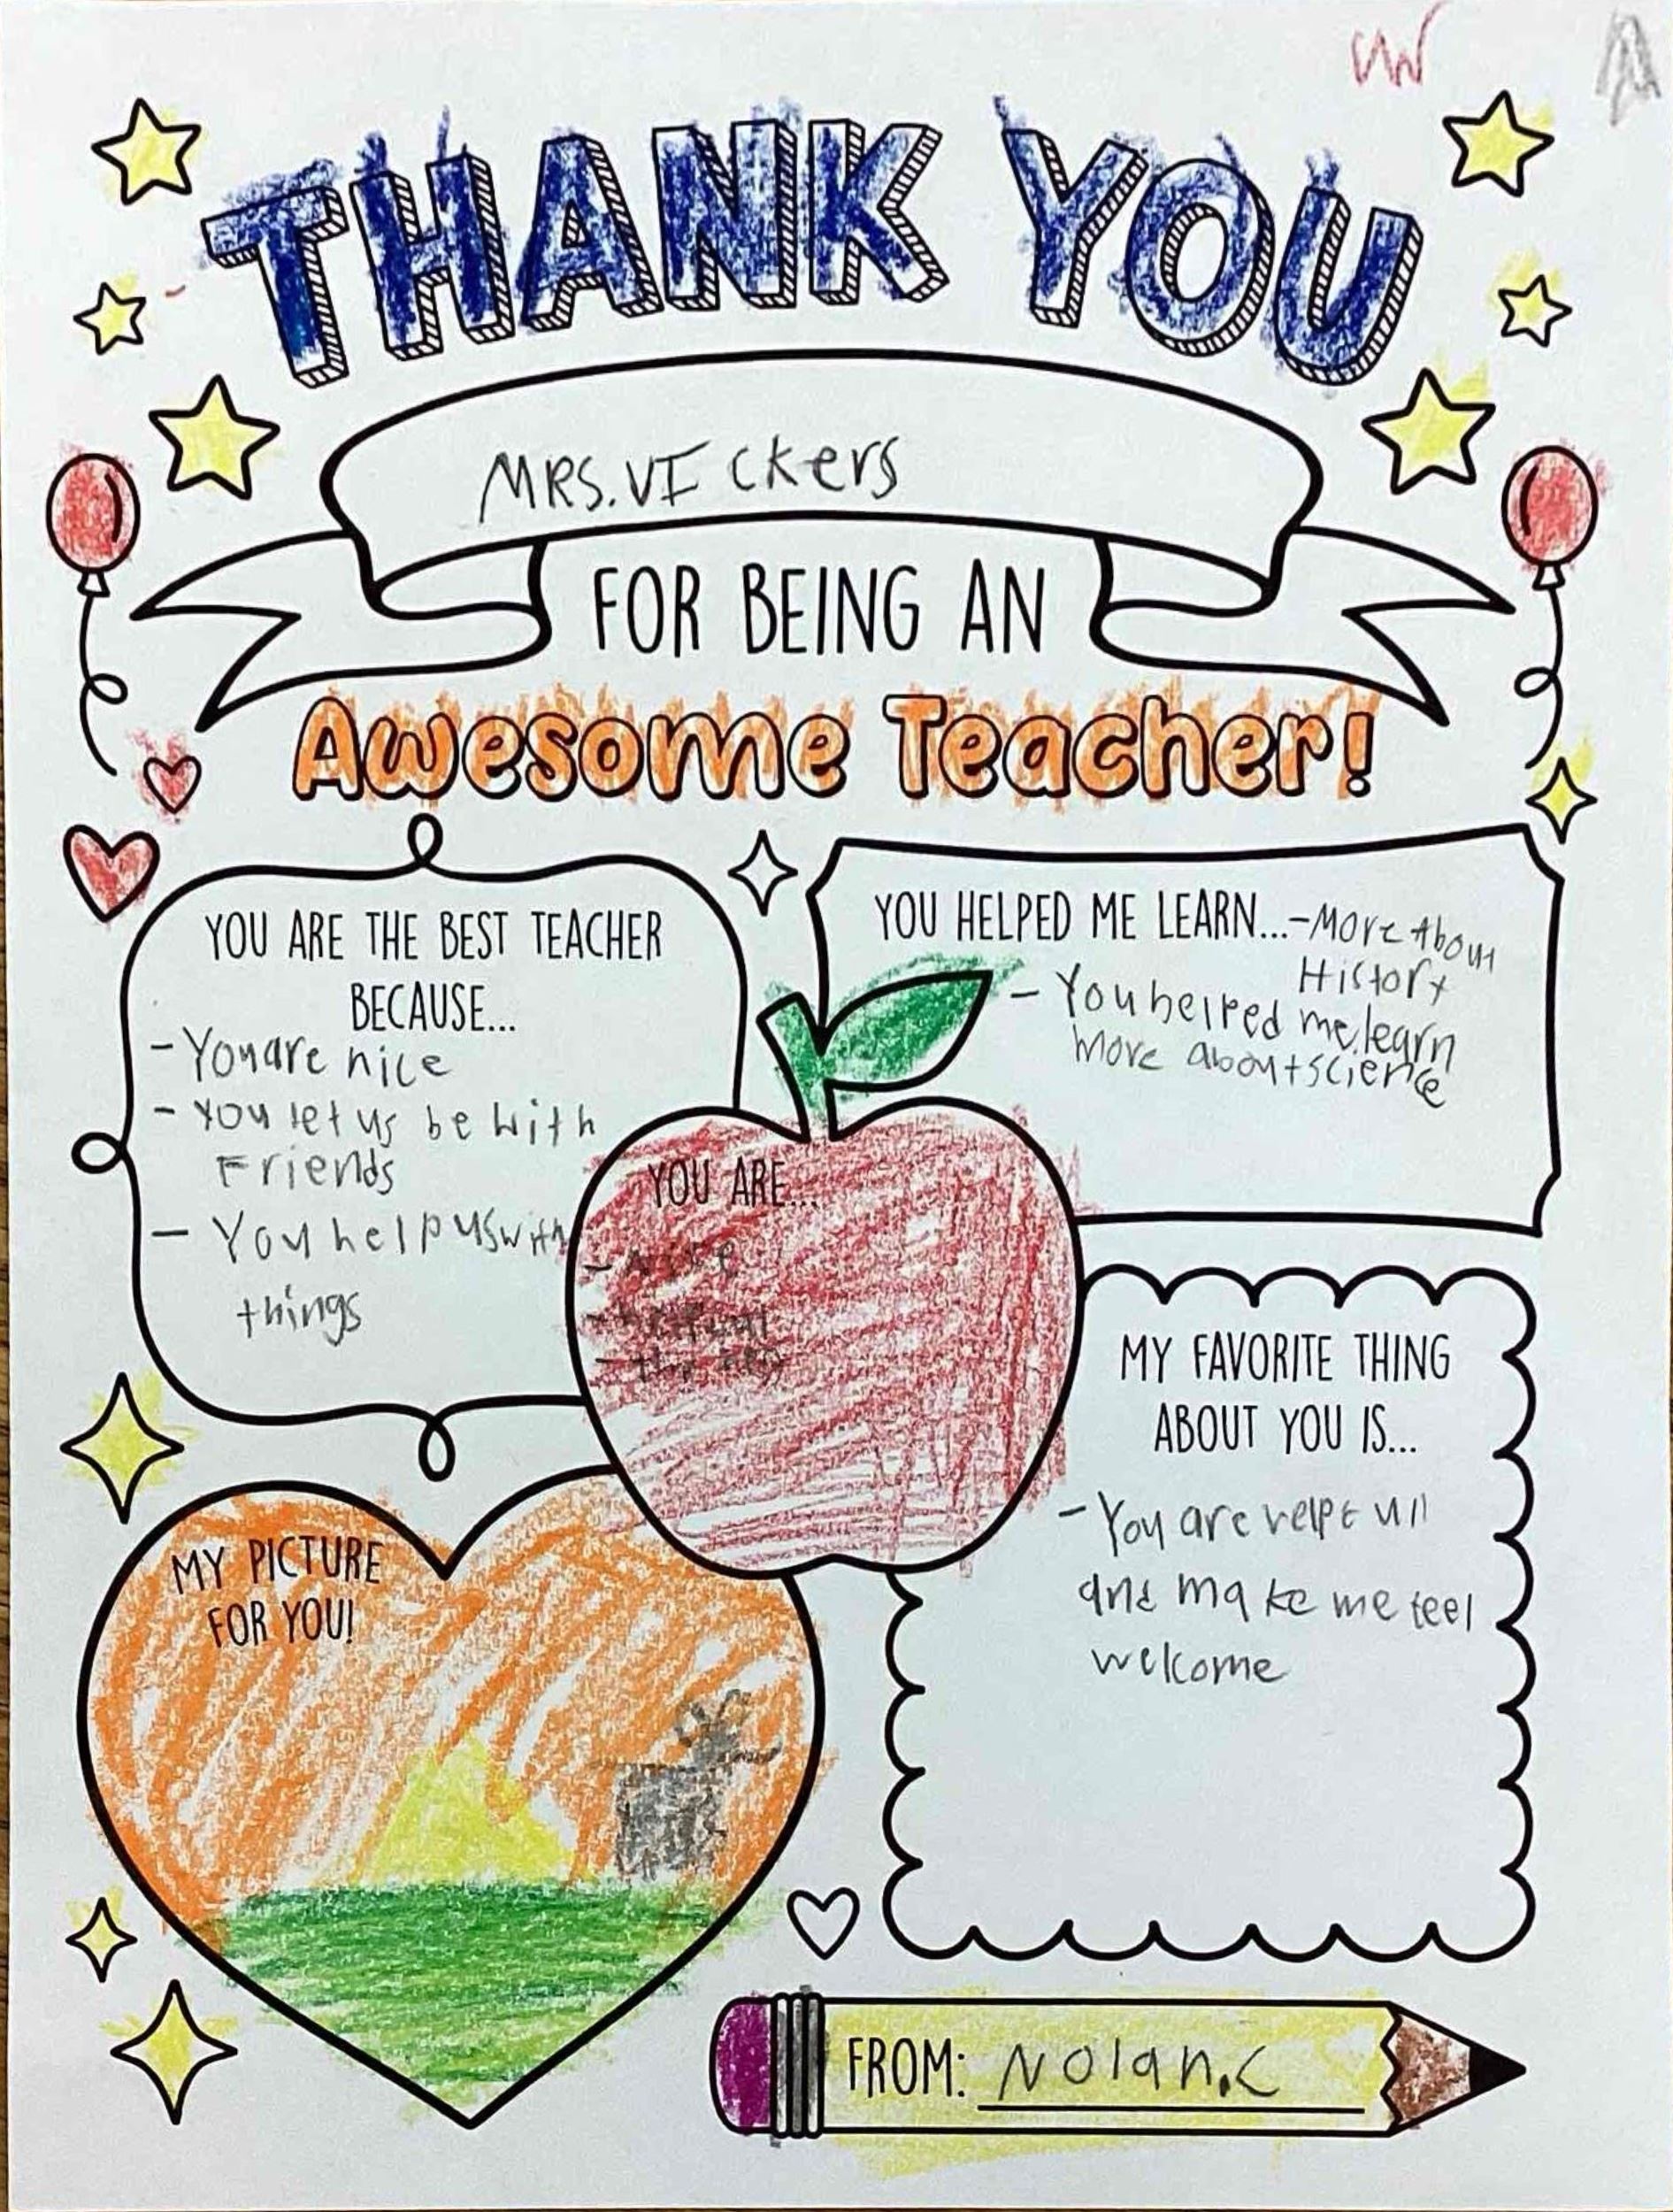 THANK YOU
MRS. VICkers
FOR BEING AN
Awesome Teacher!
YOU ARE THE BEST TEACHER
BECAUSE...
- You are nice
- You let us be with
Friends
- You help us with
things
YOU HELPED ME LEARN... - More About
History
- You helped me learn
more about science
YOU ARE...
- nice
- helpful
-
MY FAVORITE THING
ABOUT YOU IS...
- You are helpful
and make me feel
welcome
MY PICTURE
FOR YOU!
FROM: Nolan.C